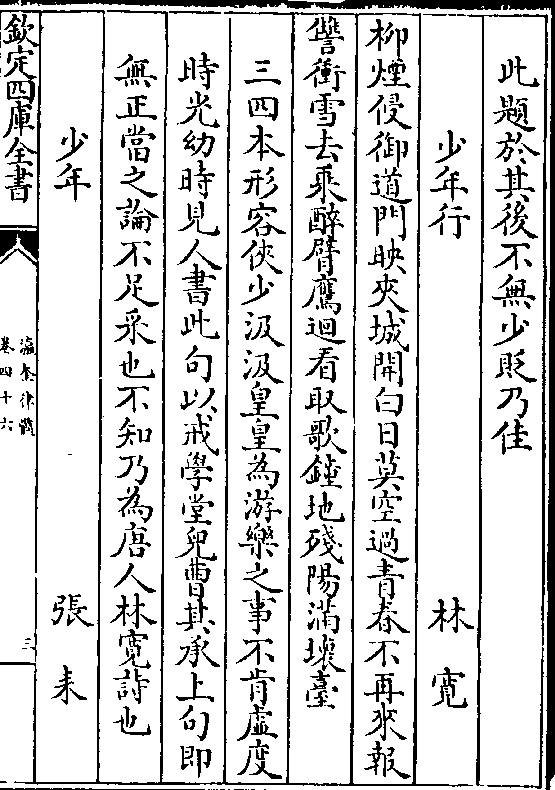 此題於其後不無少貶乃佳
少年行　林寛
柳煙侵御道門映夾城開白日莫空過青春不再來報
讐衝雪去乘醉臂鷹迴看取歌鐘地殘陽滿壞臺
三四本形容俠少汲汲皇皇為游樂之事不肯虛度
時光幼時見人書此句以戒學堂兒曹其承上句即
無正當之論不足采也不知乃為唐人林寛詩也
少年　張耒
欽定四庫全書
瀛奎律髓
卷四十六
三